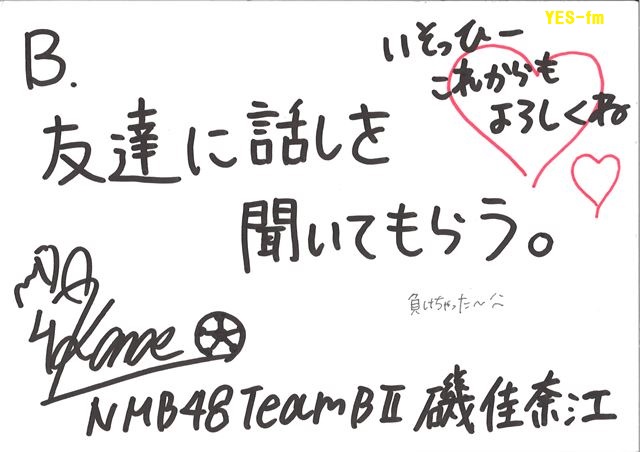 YES-fm
いそっひー
これからも
よろしくね
B.
友達に話しを
聞いてもらう。
負けちゃった〜
NMB48 Team BⅡ 磯佳奈江